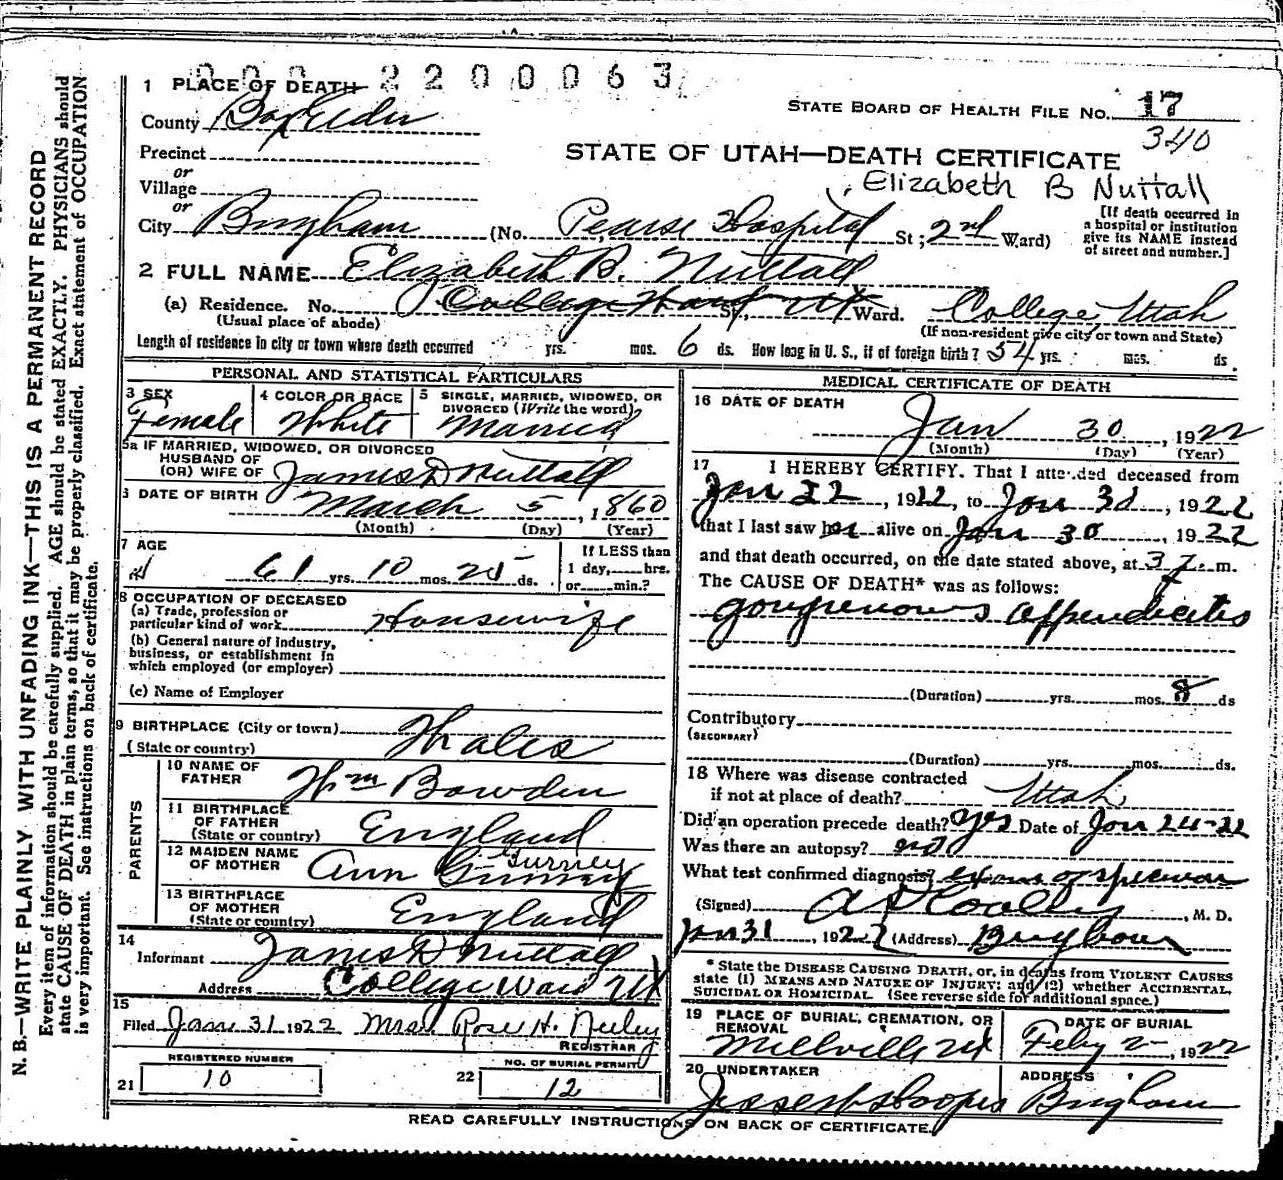 000 2200063
1 PLACE OF DEATH
STATE BOARD OF HEALTH FILE No. 17
County Box Elder
340
Precinct
STATE OF UTAH—DEATH CERTIFICATE
or
Village
Elizabeth B Nuttall
or
City Brigham (No. Pearse Hospital St; 2nd Ward)
[If death occurred in a hospital or institution give its NAME instead of street and number.]
2 FULL NAME Elizabeth B. Nuttall
(a) Residence. No. College Ward St., Ut Ward. College Utah
(Usual place of abode) (If non-resident give city or town and State)
Length of residence in city or town where death occurred yrs. mos. 6 ds. How long in U. S., if of foreign birth? 54 yrs. mos. ds.
PERSONAL AND STATISTICAL PARTICULARS
3 SEX Female
4 COLOR OR RACE White
5 SINGLE, MARRIED, WIDOWED, OR DIVORCED (Write the word) Married
5a IF MARRIED, WIDOWED, OR DIVORCED
HUSBAND OF
(OR) WIFE OF James D Nuttall
6 DATE OF BIRTH March 5, 1860
(Month) (Day) (Year)
7 AGE
61 yrs. 10 mos. 25 ds.
If LESS than
1 day, hrs.
or min.?
8 OCCUPATION OF DECEASED
(a) Trade, profession or
particular kind of work Housewife
(b) General nature of industry,
business, or establishment in
which employed (or employer)
(c) Name of Employer
9 BIRTHPLACE (City or town)
(State or country) Whales
PARENTS
10 NAME OF
FATHER Wm Bowden
11 BIRTHPLACE
OF FATHER
(State or country) England
12 MAIDEN NAME
OF MOTHER Ann Gurney
Gurney
13 BIRTHPLACE
OF MOTHER
(State or country) England
14
Informant James D Nuttall
Address College Ward Ut
15
Filed Jan 31 1922 Mrs. Rose H. Neeley
REGISTRAR
REGISTERED NUMBER
21 10
NO. OF BURIAL PERMIT
22 12
MEDICAL CERTIFICATE OF DEATH
16 DATE OF DEATH
Jan 30, 1922
(Month) (Day) (Year)
17 I HEREBY CERTIFY. That I attended deceased from
Jan 22, 1922, to Jan 30, 1922
that I last saw her alive on Jan 30, 1922
and that death occurred, on the date stated above, at 3 m.
The CAUSE OF DEATH* was as follows:
gangrenous appendicitis
(Duration) yrs. mos. 8 ds
Contributory
(SECONDARY)
(Duration) yrs. mos. ds.
18 Where was disease contracted
if not at place of death? Utah
Did an operation precede death? yes Date of Jan 24-22
Was there an autopsy? no
What test confirmed diagnosis? exam of specimen
(Signed) A D Cooley, M. D.
Jan 31, 1922 (Address) Brigham
* State the DISEASE CAUSING DEATH, or, in deaths from VIOLENT CAUSES
state (1) MEANS AND NATURE OF INJURY; and (2) whether ACCIDENTAL,
SUICIDAL OR HOMICIDAL. (See reverse side for additional space.)
19 PLACE OF BURIAL, CREMATION, OR
REMOVAL
Millville Ut
DATE OF BURIAL
Feby 2, 1922
20 UNDERTAKER
ADDRESS
Brigham
READ CAREFULLY INSTRUCTIONS ON BACK OF CERTIFICATE.
N. B.—WRITE PLAINLY WITH UNFADING INK—THIS IS A PERMANENT RECORD
Every item of information should be carefully supplied. AGE should be stated EXACTLY. PHYSICIANS should
state CAUSE OF DEATH in plain terms, so that it may be properly classified. Exact statement of OCCUPATION
is very important. See instructions on back of certificate.